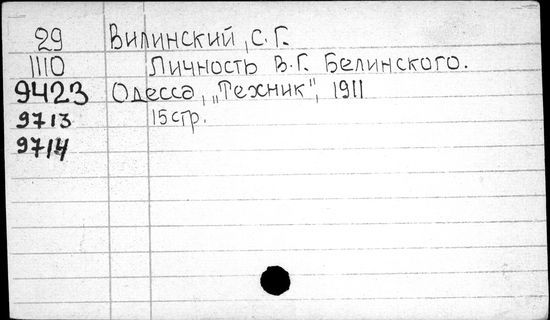 29 Вилинский, С.Г.
1110 Личность В.Г. Белинского.
9423 Одесса, „Техник", 1911
9713 15 стр.
9714